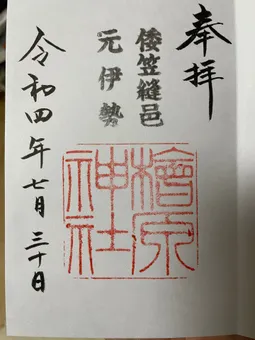 奉拝
倭笠縫邑
元伊勢
檜原神社
令和四年七月三十日